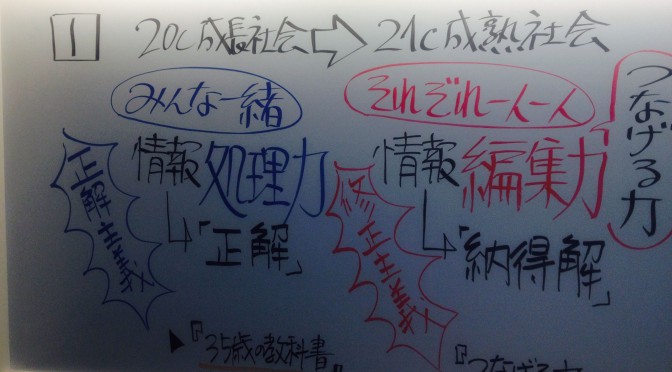 1 20C成長社会⇨21C成熟社会
みんな一緒
それぞれ一人一人
つなげる力
情報処理力
情報編集力
正解主義
修正主義
「正解」
「納得解」
▶『35歳の教科書』
『つなげる力